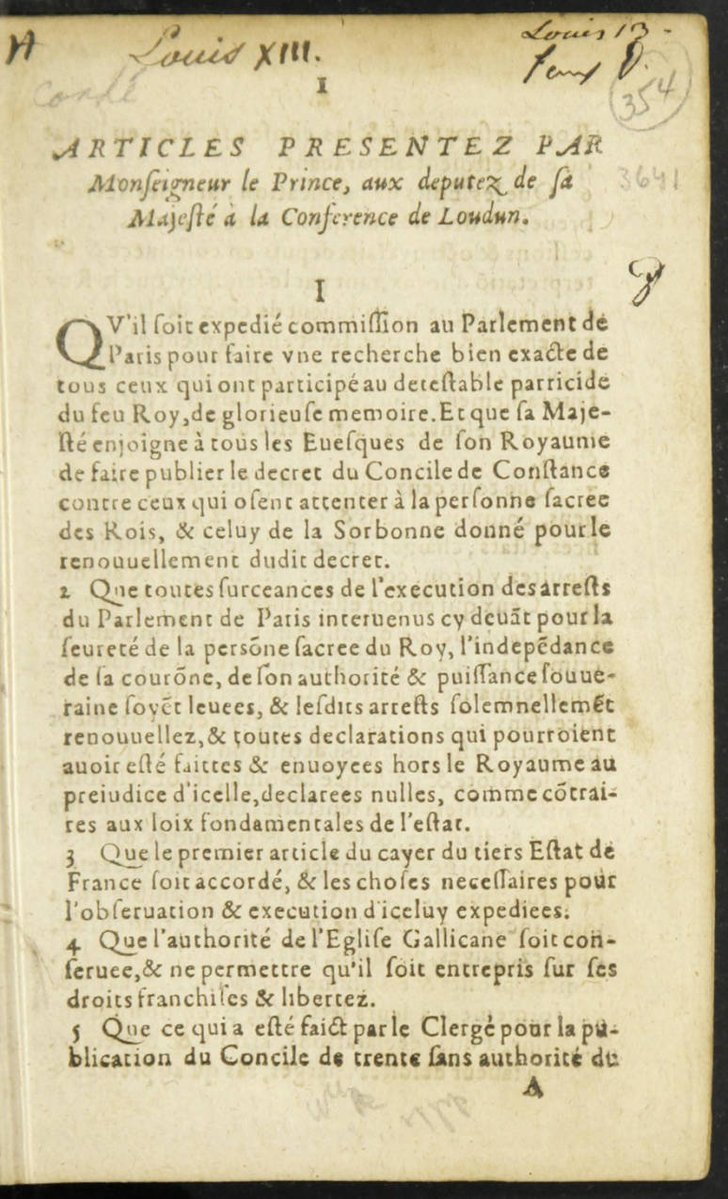 Louis XIII.
Louis 13
354
Condé
3641
1
ARTICLES PRESENTEZ PAR
Monſeigneur le Prince, aux deputez de ſa
Majeſté à la Conference de Loudun.
I
QV'il ſoit expedié commiſſion au Parlement de
Paris pour faire vne recherche bien exacte de
tous ceux qui ont participé au deteſtable parricide
du feu Roy, de glorieuſe memoire. Et que ſa Maje-
ſté enjoigne à tous les Eueſques de ſon Royaume
de faire publier le decret du Concile de Conſtance
contre ceux qui oſent attenter à la perſonne ſacree
des Rois, & celuy de la Sorbonne donné pour le
renouuellement dudit decret.
2 Que toutes ſurceances de l'execution des arreſts
du Parlement de Paris interuenus cy deuãt pour la
ſeureté de la persõne ſacree du Roy, l'indepẽdance
de ſa courõne, de ſon authorité & puiſſance ſouue-
raine ſoyẽt leuees, & leſdits arreſts ſolemnellemẽt
renouuellez, & toutes declarations qui pourroient
auoir eſté faittes & enuoyees hors le Royaume au
preiudice d'icelle, declarees nulles, comme cõtrai-
res aux loix fondamentales de l'eſtat.
3 Que le premier article du cayer du tiers Eſtat de
France ſoit accordé, & les choſes neceſſaires pour
l'obſeruation & execution d'iceluy expediees.
4 Que l'authorité de l'Egliſe Gallicane ſoit con-
ſeruee, & ne permettre qu'il ſoit entrepris ſur ſes
droits franchiſes & libertez.
5 Que ce qui a eſté faict par le Clergé pour la pu-
blication du Concile de trente ſans authorité du
A